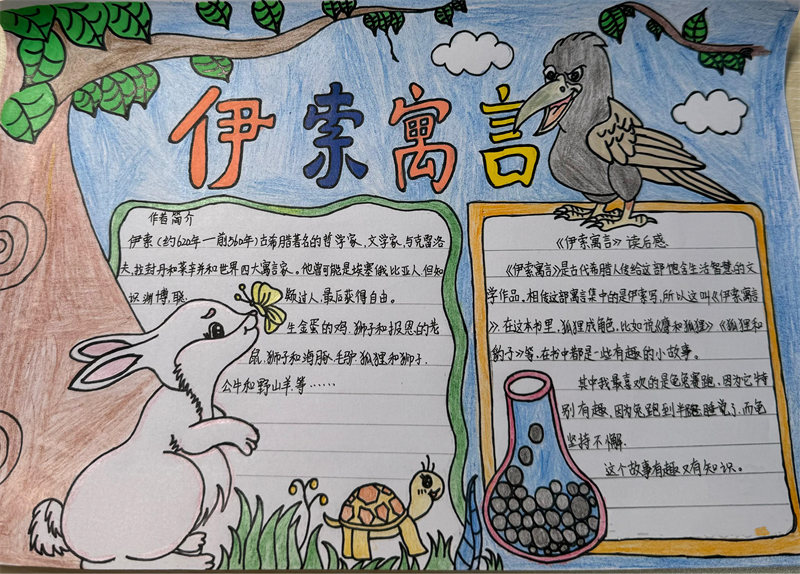 伊索寓言
作者简介
伊索(约620年一前560年)古希腊著名的哲学家、文学家,与克雷洛
夫、拉封丹和莱辛并和世界四大寓言家。他曾可能是埃塞俄比亚人但知
识渊博,聪 颖过人,最后获得自由。
生金蛋的鸡、狮子和报恩的老
鼠、狮子和海豚、毛驴、狐狸和狮子、
公牛和野山羊、等……
《伊索寓言》读后感
《伊索寓言》是古代希腊人传给这部饱含生活智慧的文
学作品。相传这部寓言集中的是伊索写,所以这叫《伊索寓言
》。在这本书里,狐狸成角色,比如说《鹰和狐狸》《狐狸和
豹子》等,在书中都是一些有趣的小故事。
其中我最喜欢的是龟兔赛跑,因为它特
别有趣,因为兔跑到半路睡觉了,而龟
坚持不懈.
这个故事有趣又有知识。